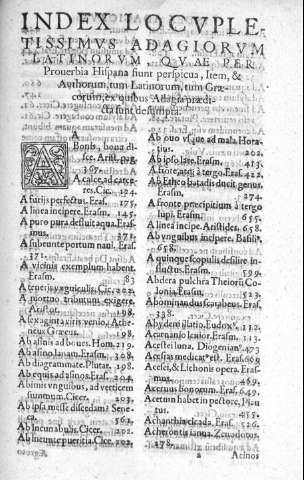 INDEX LOCVPLE-
TISSIMVS ADAGIORVM
LATINORVM QVAE PER
Prouerbia Hispana fiunt perspicua, Item, &
Authorum, tum Latinorum, tum Græ-
corum, ex quibus Adagia prædi-
cta sunt desumpta.
A
A Bonis, bona di-
sce. Arist. pag.
367.
A calce, ad carce-
res. Cic. 174.
A fatis perfectus. Eras. 175.
A linea incipere. Erasm. 145.
A puro pura defluit aqua. Eras-
mus. 271.
A subeunte portum naui. Eras.
371.
A vicinis exemplum habent.
Erasm. 83
A teneris vnguiculis. Cic. 203.
A mortuo tributum exigere.
Arist.
A lexantea viris venio, Athe-
neus Græcus. 198.
Ab asinis ad boues. Hom. 219.
Ab asino lanam. Erasm.
Ab diagrammate. Plutar. 198.
Ab equis ad asinos. Eras. 302.
Ab imis vnguibus, ad verticem
summum. Cicer. 203.
Ab ipsa messe discedam? Sene-
ca. 563.
Ab incunabulis. Cicer. 202.
Ab ineunte pueritia. Cice. 202.
Ab ouo vsque ad mala. Hora-
tius. 202.
Ab ipso lare. Erasm. 413.
A fronte, atque à tergo. Eras. 422.
Ab Estreo batadis ducit genus.
Erasm. 274.
A fronte præcipitium à tergo
lupi. Erasm. 655.
A linea incipe. Aristides. 658.
Ab vnguibus incipere. Basili9.
658.
A quinque scopulis desilire in-
fluctus. Erasm. 599.
Abdera pulchra Theiorū Co-
lonia. Erasm. 523.
Abominandus scarabeus. Eras.
338.
Abydeni illatio. Eudox9. 112.
Acarnanso leuior. Erasm. 113.
Acessei luna. Diogenian9. 473
Acesias medicat9 est. Erasm. 608
Acesei, & Lichonis opera. Eras-
mus. 469.
Aceruus bonorum. Eras. 649.
Acetum habet in pectore, Plau-
tus. 527.
Achanthia cicada. Eras. 526.
Acherontis ianua. Zenodotus.
178.
a Acinos